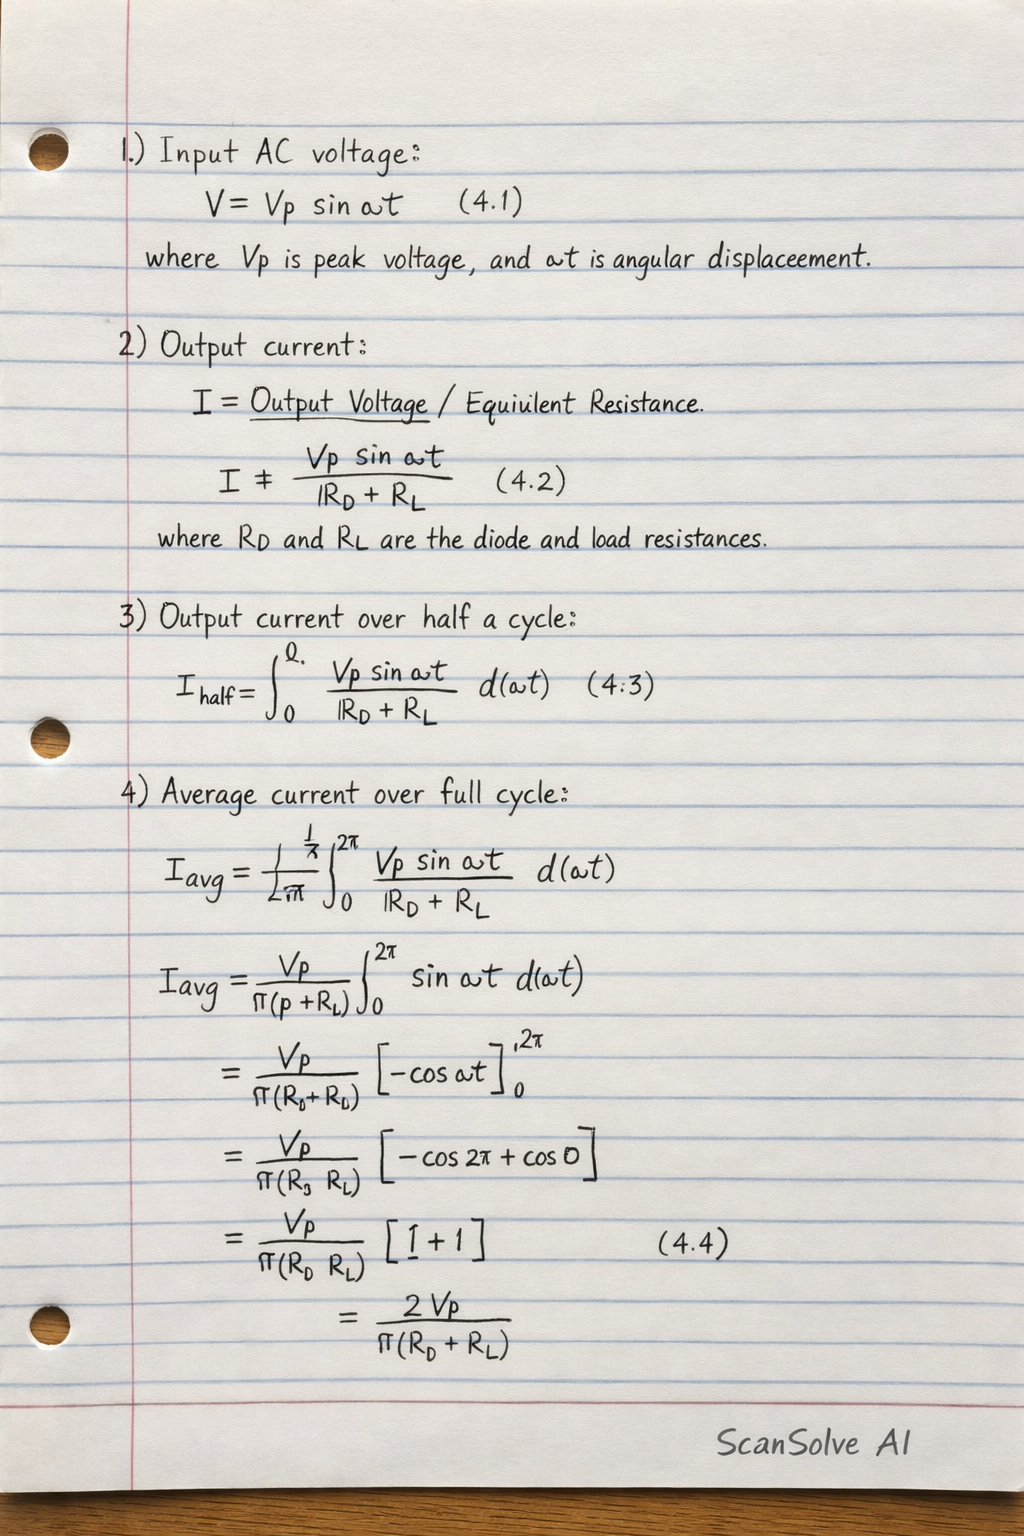 1.) Input AC voltage:
V = Vp sin ωt (4.1)
where Vp is peak voltage, and ωt is angular displaceement.
2) Output current:
I = Output Voltage / Equiuilent Resistance.
I ≠ Vp sin ωt / RD + RL (4.2)
where RD and RL are the diode and load resistances.
3) Output current over half a cycle:
I half = ∫0 Vp sin ωt / RD + RL d(ωt) (4.3)
4) Average current over full cycle:
Iavg = ∫0 2π Vp sin ωt / RD + RL d(ωt)
Iavg = Vp / π(p + RL) ∫0 2π sin ωt d(ωt)
= Vp / π(RD + RD) [-cos ωt] 2π 0
= Vp / π(R3 RL) [-cos 2π + cos 0]
= Vp / π(RD RL) [1 + 1] (4.4)
= 2 Vp / π(RD + RL)
ScanSolve AI